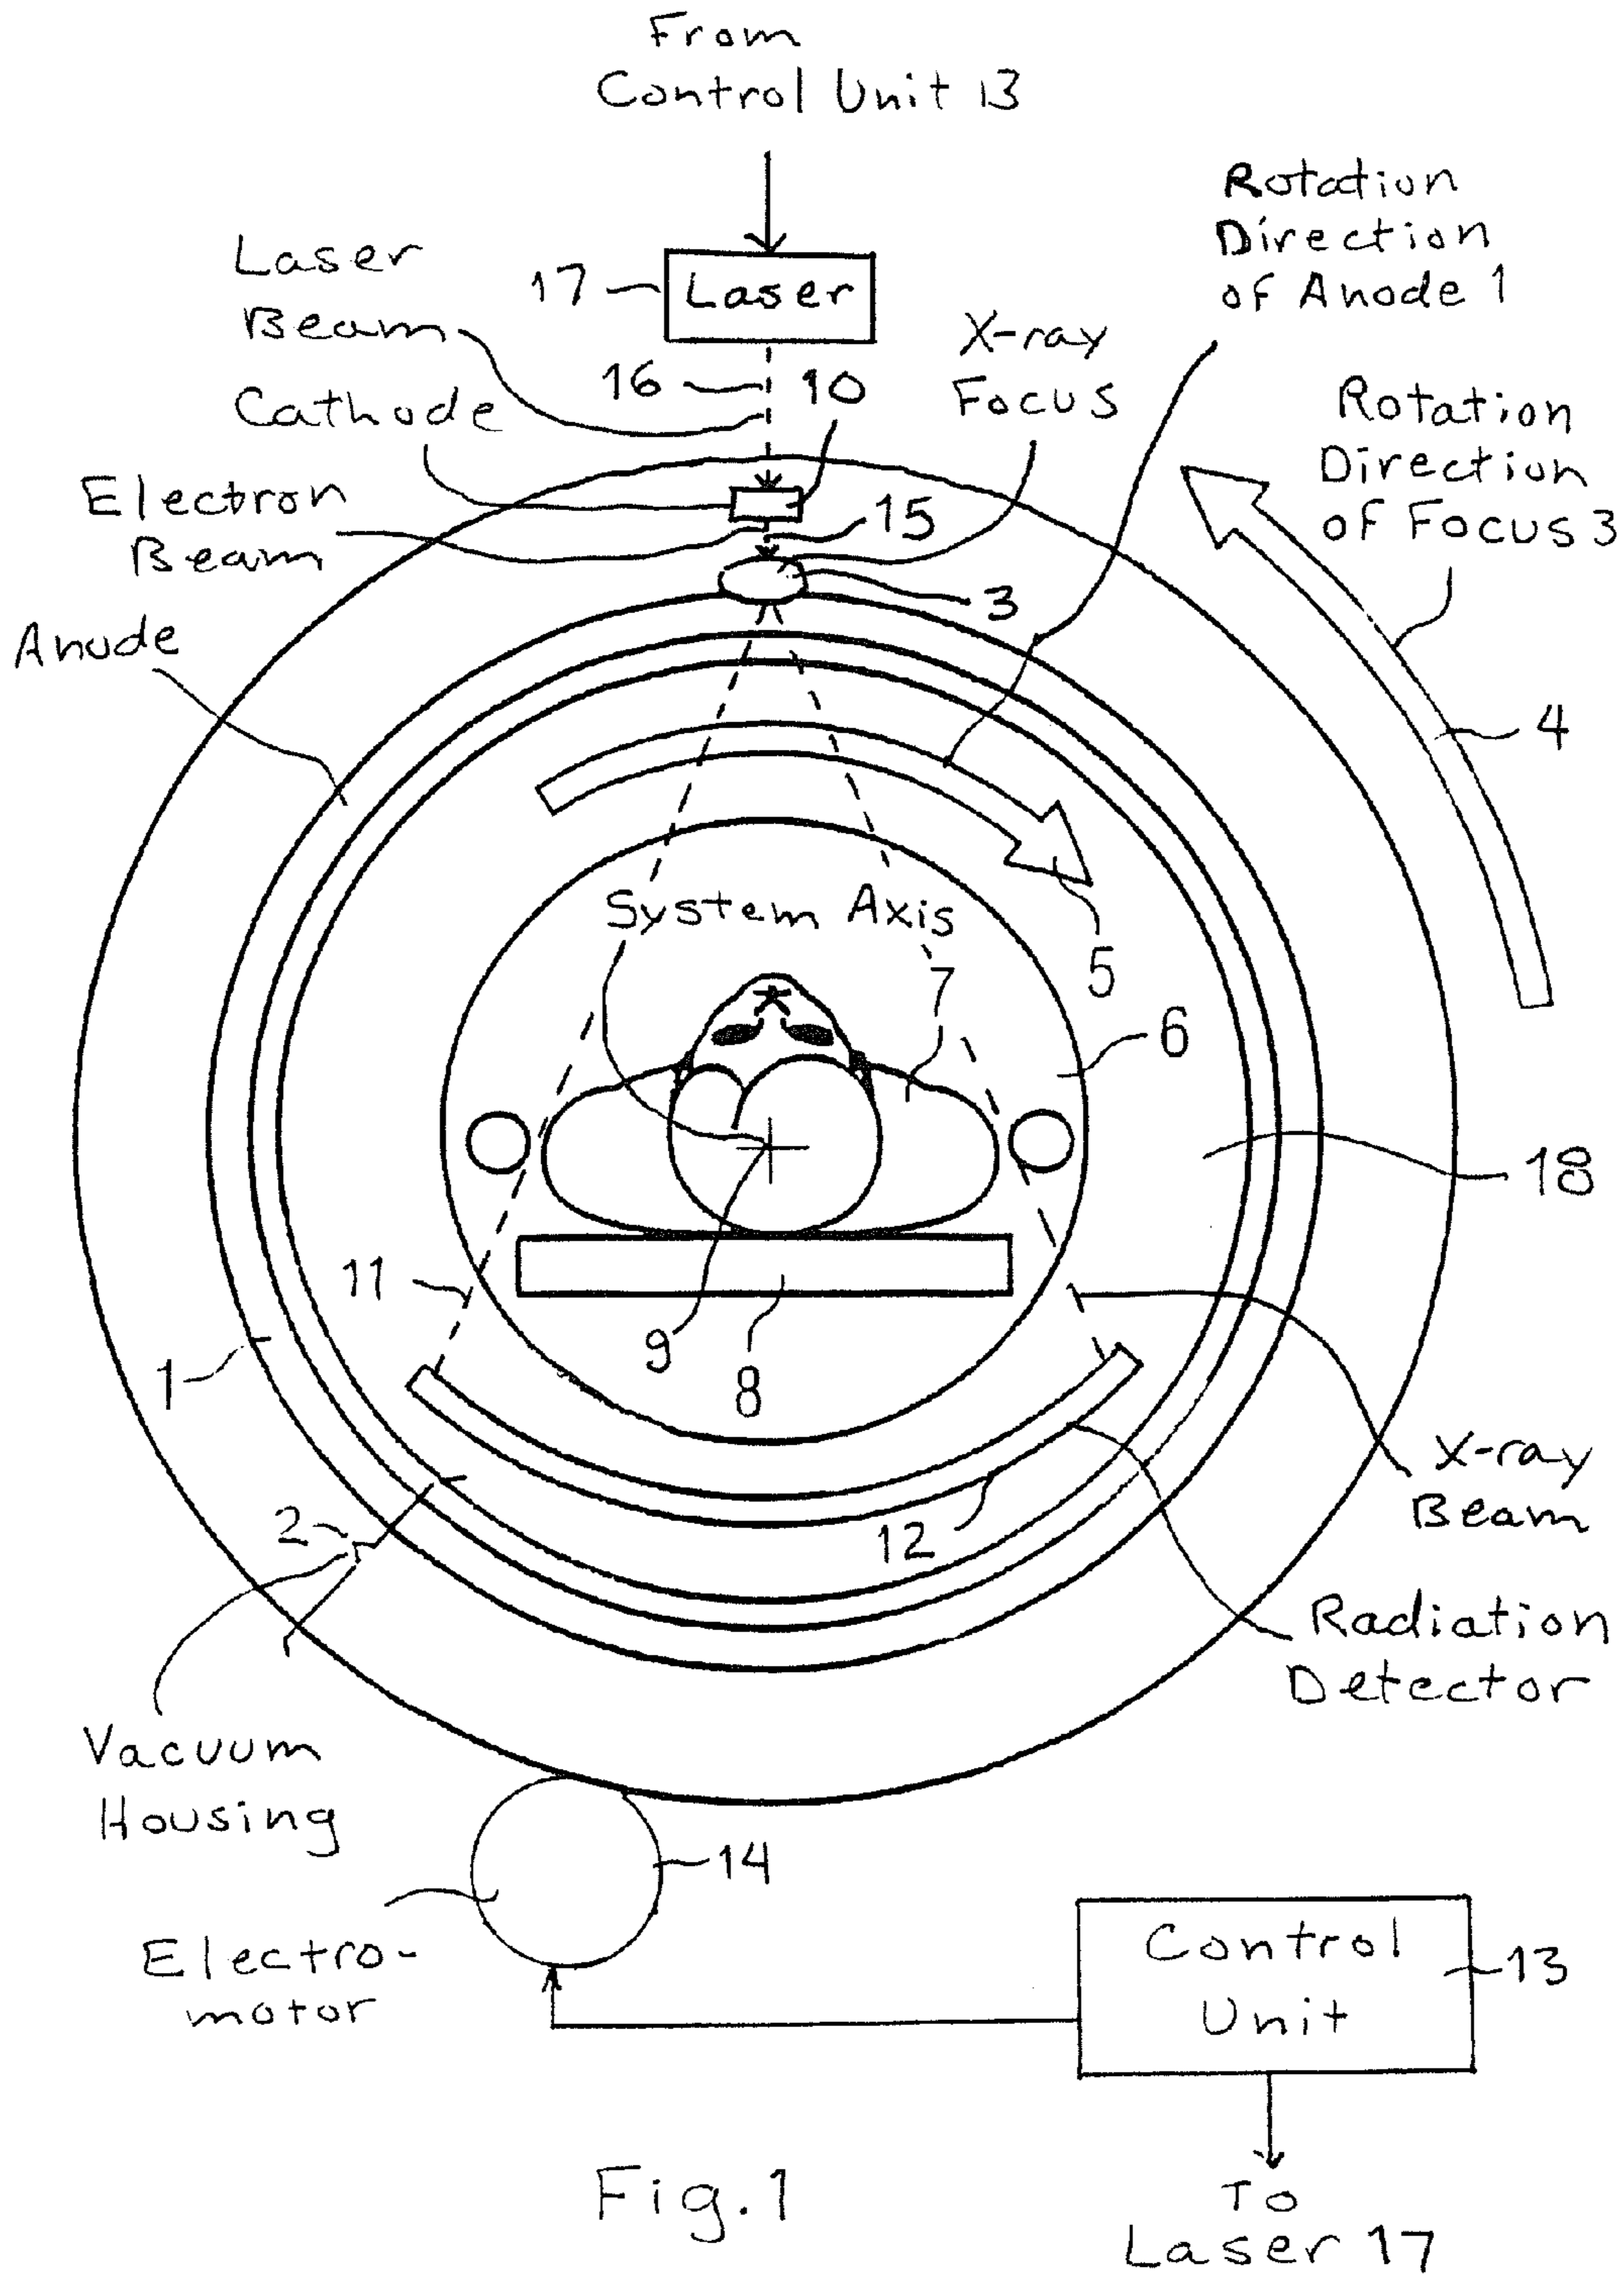 From
Control Unit 13
Rotation
Direction
of Anode 1
Laser
Beam
17
Laser
X-ray
Focus
16
10
Cathode
Rotation
Direction
of Focus 3
Electron
Beam
15
3
Anode
4
System Axis
5
7
6
18
11
9
8
1
X-ray
Beam
2
12
Radiation
Detector
Vacuum
Housing
14
Electro-
motor
Control
Unit
13
Fig. 1
To
Laser 17